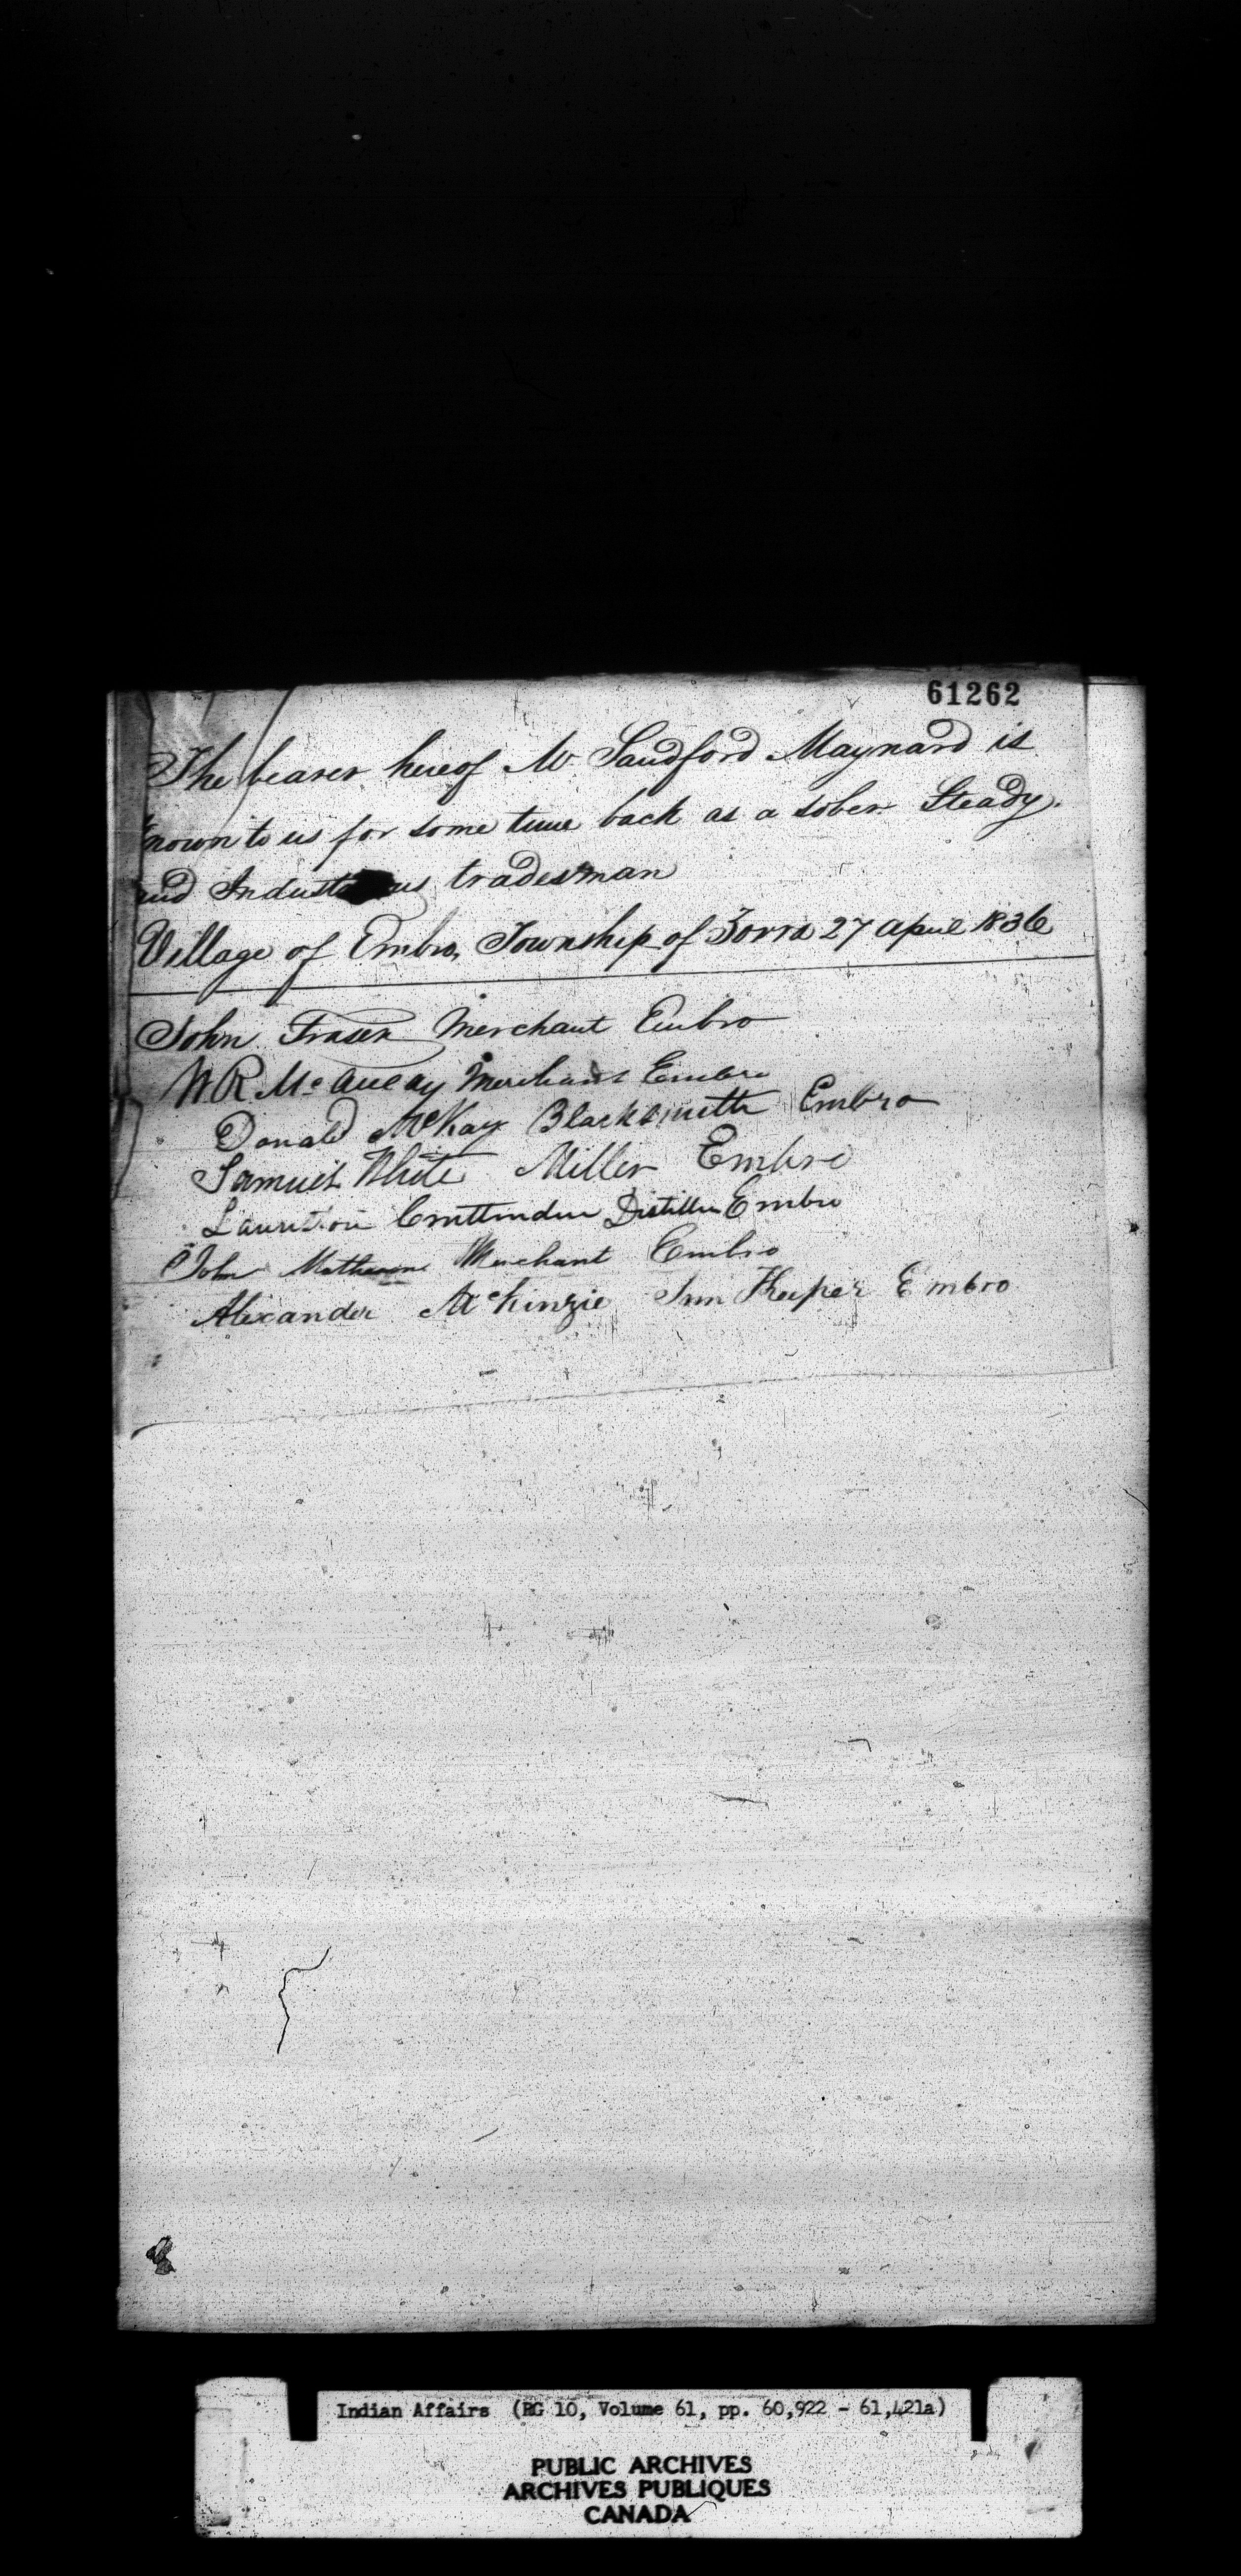 61262
The bearer hereof Mr Sandford Maynard is
known to us for some time back as a sober Steady
and Industrious tradesman
Village of Embro, Township of Zorra 27 April 1836
John Fraser Merchant Embro
W R McAulay Merchant Embro
Donald McKay Blacksmith Embro
Samuel White Miller Embro
Cruttenden Distiller Embro
John Matheson Merchant Embro
Alexander McKinzie Inn Keeper Embro
Indian Affairs (RG 10, Volume 61, pp. 60,922 - 61,421a)
PUBLIC ARCHIVES
ARCHIVES PUBLIQUES
CANADA